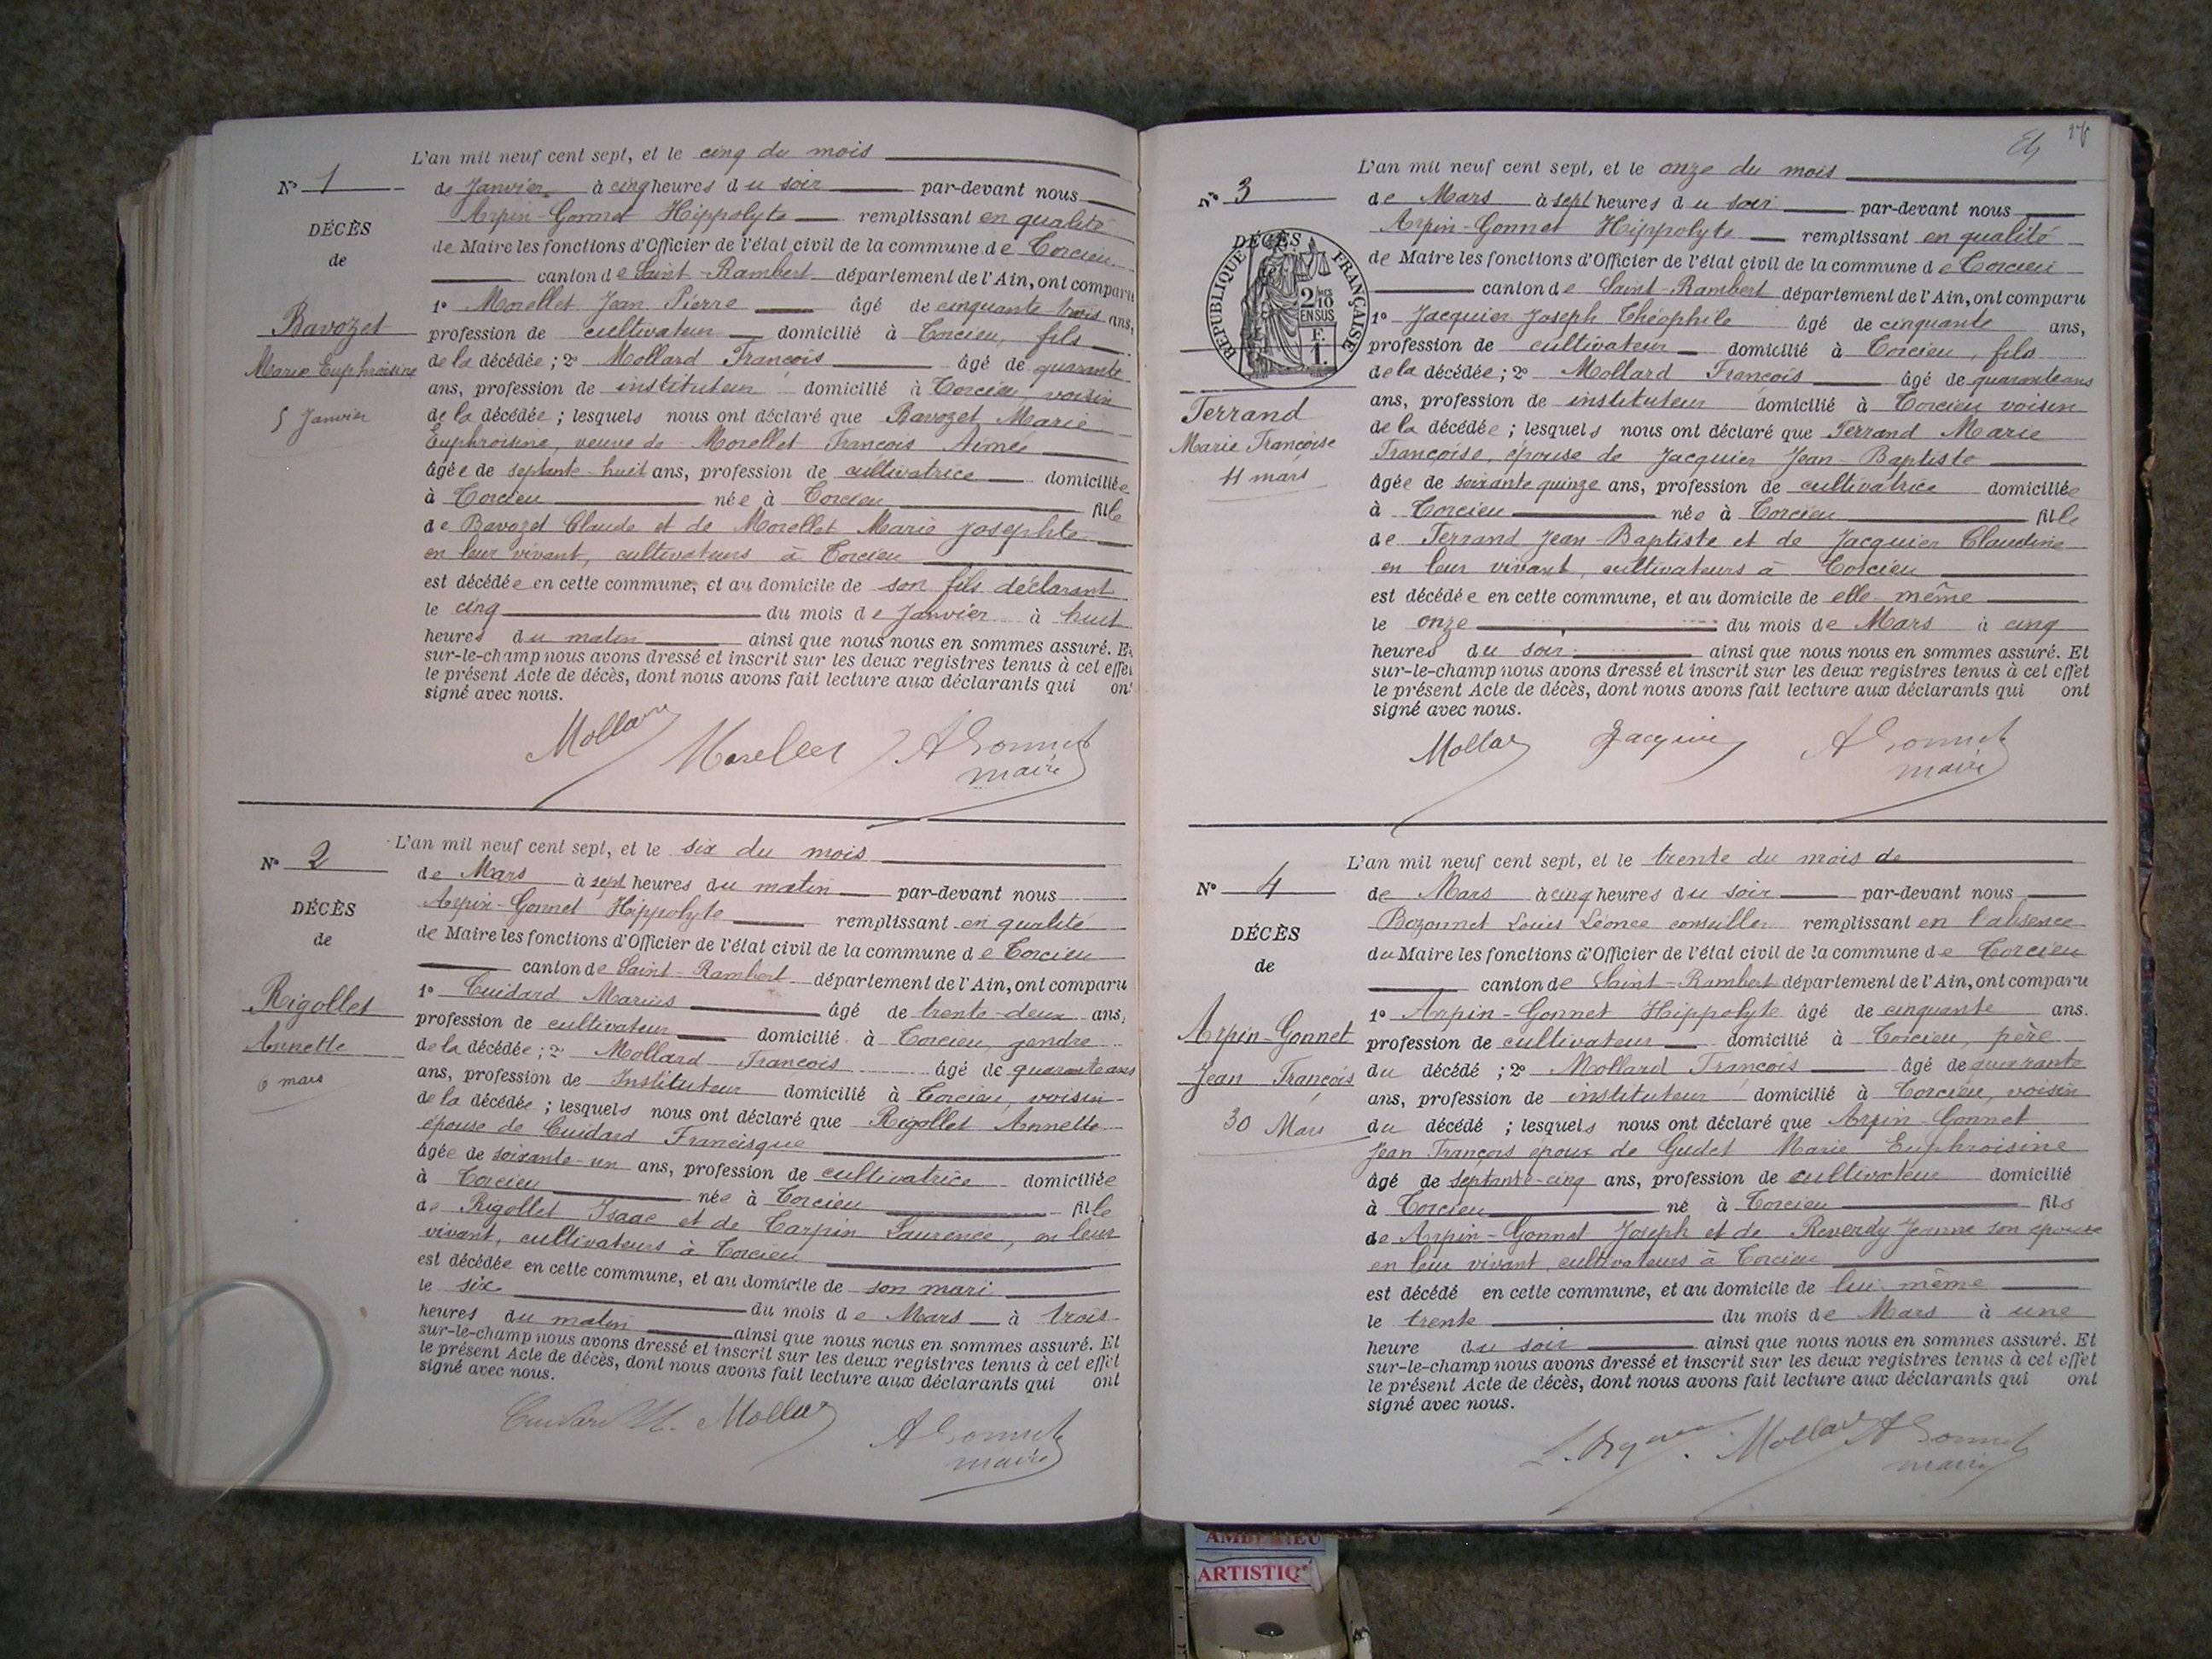 L'an mil neuf cent sept, et le cinq du mois
N° 1
de Janvier à cinq heures du soir par-devant nous
Arpin-Gonnet Hippolyte remplissant en qualité
DÉCÈS
de Maire les fonctions d'Officier de l'état civil de la commune de Torcieu
de
canton de Saint-Rambert département de l'Ain, ont comparu
1° Morellet Jean Pierre âgé de cinquante trois ans,
Bavozet
profession de cultivateur domicilié à Torcieu, fils
Marie Euphroisine
de la décédée ; 2° Mollard François âgé de quarante
ans, profession de instituteur domicilié à Torcieu, voisin
5 Janvier
de la décédée ; lesquels nous ont déclaré que Bavozet Marie
Euphroisine, veuve de Morellet François Aimé
âgée de septante-huit ans, profession de cultivatrice domiciliée
à Torcieu née à Torcieu fille
de Bavozet Claude et de Morellet Marie Josephte
en leur vivant, cultivateurs à Torcieu
est décédée en cette commune, et au domicile de son fils déclarant
le cinq du mois de Janvier à huit
heures du matin ainsi que nous nous en sommes assuré. Et
sur-le-champ nous avons dressé et inscrit sur les deux registres tenus à cet effet
le présent Acte de décès, dont nous avons fait lecture aux déclarants qui ont
signé avec nous.
Mollard Morellet AGonnet
maire
L'an mil neuf cent sept, et le six du mois
N° 2
de Mars à sept heures du matin par-devant nous
Arpin-Gonnet Hippolyte remplissant en qualité
DÉCÈS
de Maire les fonctions d'Officier de l'état civil de la commune de Torcieu
de
canton de Saint-Rambert département de l'Ain, ont comparu
1° Cuidard Marius âgé de trente-deux ans,
Rigollet
profession de cultivateur domicilié à Torcieu, gendre
Annette
de la décédée ; 2° Mollard François âgé de quarante ans
6 mars
ans, profession de Instituteur domicilié à Torcieu, voisin
de la décédée ; lesquels nous ont déclaré que Rigollet Annette
épouse de Cuidard Francisque
âgée de soixante-un ans, profession de cultivatrice domiciliée
à Torcieu née à Torcieu fille
de Rigollet Isaac et de Carpin Laurence, en leur
vivant, cultivateurs à Torcieu
est décédée en cette commune, et au domicile de son mari
le six du mois de Mars à trois
heures du matin ainsi que nous nous en sommes assuré. Et
sur-le-champ nous avons dressé et inscrit sur les deux registres tenus à cet effet
le présent Acte de décès, dont nous avons fait lecture aux déclarants qui ont
signé avec nous.
Cuidard M. Mollard AGonnet
maire
L'an mil neuf cent sept, et le onze du mois
N° 3
de Mars à sept heures du soir par-devant nous
Arpin-Gonnet Hippolyte remplissant en qualité
DÉCÈS
RÉPUBLIQUE FRANÇAISE
2/10 EN SUS
F. 1.
de Maire les fonctions d'Officier de l'état civil de la commune de Torcieu
canton de Saint-Rambert département de l'Ain, ont comparu
1° Jacquier Joseph Théophile âgé de cinquante ans,
profession de cultivateur domicilié à Torcieu, fils
de la décédée ; 2° Mollard François âgé de quarante ans
Ferrand
ans, profession de instituteur domicilié à Torcieu voisin
Marie Françoise
de la décédée ; lesquels nous ont déclaré que Ferrand Marie
Françoise, épouse de Jacquier Jean-Baptiste
11 mars
âgée de soixante quinze ans, profession de cultivatrice domiciliée
à Torcieu née à Torcieu fille
de Ferrand Jean-Baptiste et de Jacquier Claudine
en leur vivant, cultivateurs à Torcieu
est décédée en cette commune, et au domicile de elle-même
le onze du mois de Mars à cinq
heures du soir ainsi que nous nous en sommes assuré. Et
sur-le-champ nous avons dressé et inscrit sur les deux registres tenus à cet effet
le présent Acte de décès, dont nous avons fait lecture aux déclarants qui ont
signé avec nous.
Mollard Jacquier AGonnet
maire
L'an mil neuf cent sept, et le trente du mois de
N° 4
de Mars à cinq heures du soir par-devant nous
Bozonnet Louis Léonce conseiller remplissant en l'absence
DÉCÈS
du Maire les fonctions d'Officier de l'état civil de la commune de Torcieu
de
canton de Saint-Rambert département de l'Ain, ont comparu
1° Arpin-Gonnet Hippolyte âgé de cinquante ans.
Arpin-Gonnet
profession de cultivateur domicilié à Torcieu, père
Jean François
du décédé ; 2° Mollard François âgé de quarante
ans, profession de instituteur domicilié à Torcieu, voisin
30 Mars
du décédé ; lesquels nous ont déclaré que Arpin-Gonnet
Jean François époux de Gudet Marie Euphroisine
âgé de septante-cinq ans, profession de cultivateur domicilié
à Torcieu né à Torcieu fils
de Arpin-Gonnet Joseph et de Reverdy Jeanne son épouse
en leur vivant, cultivateurs à Torcieu
est décédé en cette commune, et au domicile de lui-même
le trente du mois de Mars à une
heure du soir ainsi que nous nous en sommes assuré. Et
sur-le-champ nous avons dressé et inscrit sur les deux registres tenus à cet effet
le présent Acte de décès, dont nous avons fait lecture aux déclarants qui ont
signé avec nous.
Mollard AGonnet
maire
AMBERIEU
ARTISTIQ